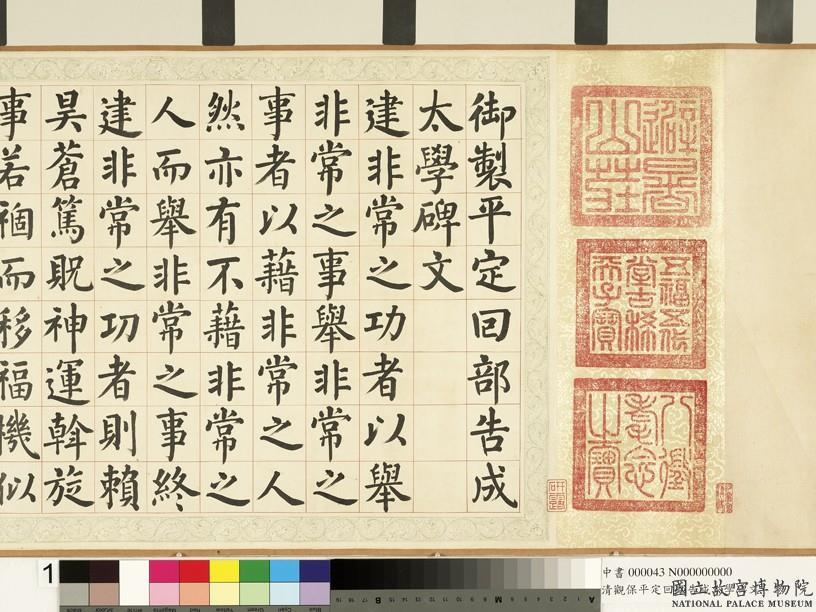 避暑山莊
五福五代堂古稀天子寶
八徵耄念之寶
御製平定回部告成
太學碑文
建非常之功者以舉
非常之事舉非常之
事者以藉非常之人
然亦有不藉非常之
人而舉非常之事終
建非常之功者則賴
昊蒼篤貺神運斡旋
事若禍而移福機似
1
中書 000043 N000000000
清觀保平定回
國立故宮博物院
NATIONAL PALACE MUSEUM